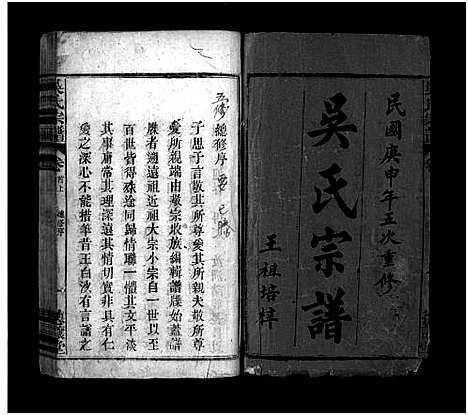 民國庚申年五次重修
吳氏宗譜
王祖培梓
五修總修序
子思子言敬其所尊愛其所親夫敬所尊
愛所親端由敬宗收族編輯譜牒始蓋譜
牒者邇遠祖近祖大宗小宗自一世以至
百世皆得殊途同歸情聯一體其文平淡
其事庸常其理深遠其情切實非有言議
愛之深心不能措筆昔王白沙有言譜之
吳氏宗譜
卷首上
總修序